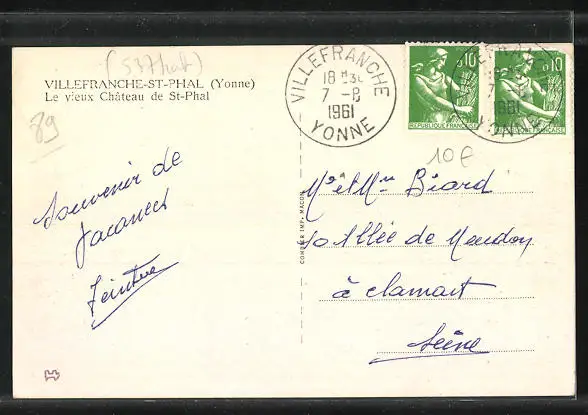 (537hab)
VILLEFRANCHE-ST-PHAL (Yonne)
Le vieux Château de St-Phal
89
Souvenir de
Vacances
VILLEFRANCHE
18 H 30
7 - 8
1961
YONNE
0,10
REPUBLIQUE FRANÇAISE
0,10
REPUBLIQUE FRANÇAISE
1961
10€
COMBIER IMP. MACON
Mr et Mme Biard
10 Allée de Meudon
à Clamart
Seine